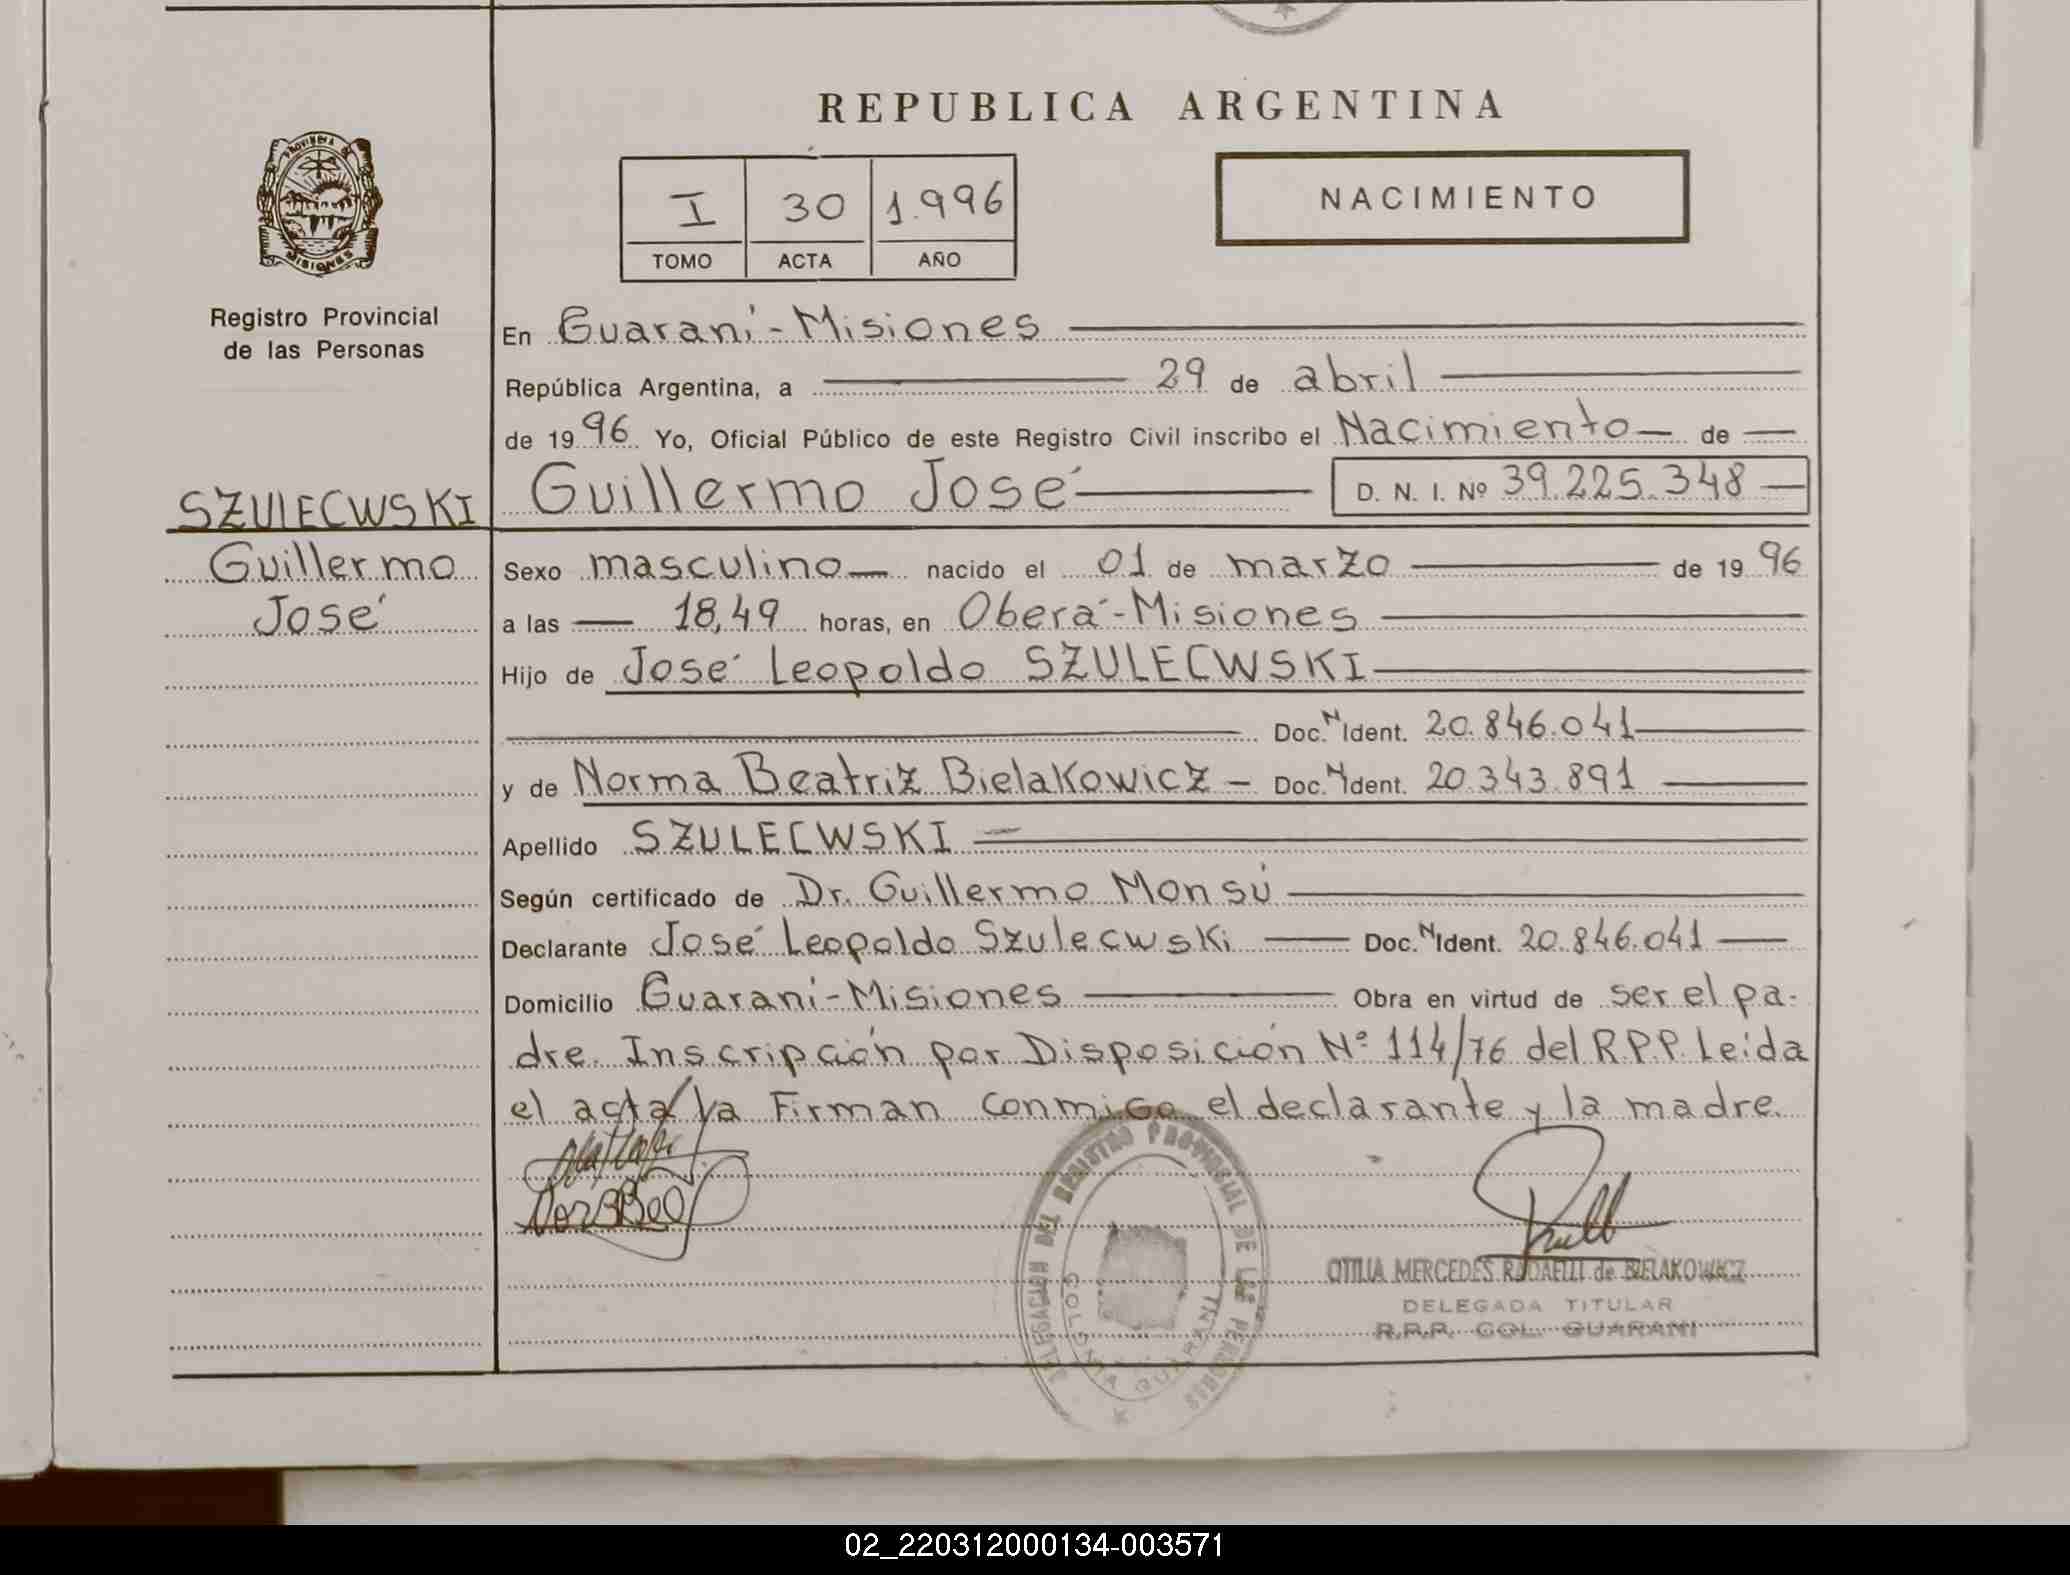 REPUBLICA ARGENTINA
PROVINCIA DE
MISIONES
Registro Provincial
de las Personas
I 30 1.996
TOMO ACTA AÑO
NACIMIENTO
En Guaraní-Misiones
República Argentina, a 29 de abril
de 1996 Yo, Oficial Público de este Registro Civil inscribo el Nacimiento de
SZULECWSKI
Guillermo
José
Guillermo José D. N. I. Nº 39.225.348
Sexo masculino nacido el 01 de marzo de 1996
a las 18,49 horas, en Oberá-Misiones
Hijo de José Leopoldo SZULECWSKI
Doc. N Ident. 20.846.041
y de Norma Beatriz Bielakowicz - Doc. N Ident. 20.343.891
Apellido SZULECWSKI
Según certificado de Dr. Guillermo Monsú
Declarante José Leopoldo Szulecwski Doc. N Ident. 20.846.041
Domicilio Guaraní-Misiones Obra en virtud de ser el pa-
dre. Inscripción por Disposición Nº 114/76 del R.P.P. Leída
el acta la Firman conmigo el declarante y la madre.
DELEGACION DEL REGISTRO PROVINCIAL DE LAS PERSONAS
COLONIA GUARANI
OTILIA MERCEDES RADAELLI de BIELAKOWICZ
DELEGADA TITULAR
R.P.P. COL. GUARANI
02_220312000134-003571